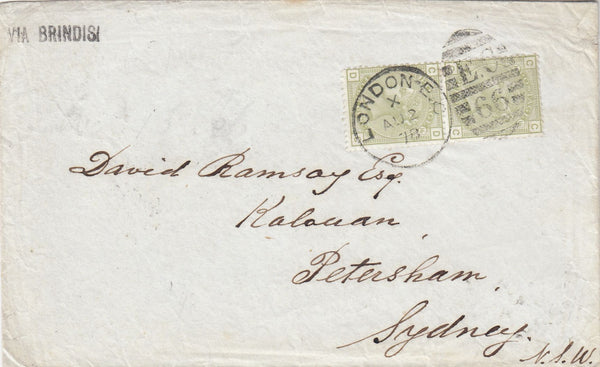 VIA BRINDISI
LONDON·E.C
X
AU 2
78
E.C
66
D
D
C
C
David Ramsay Esq.
Kalouan
Petersham
Sydney.
N.S.W.